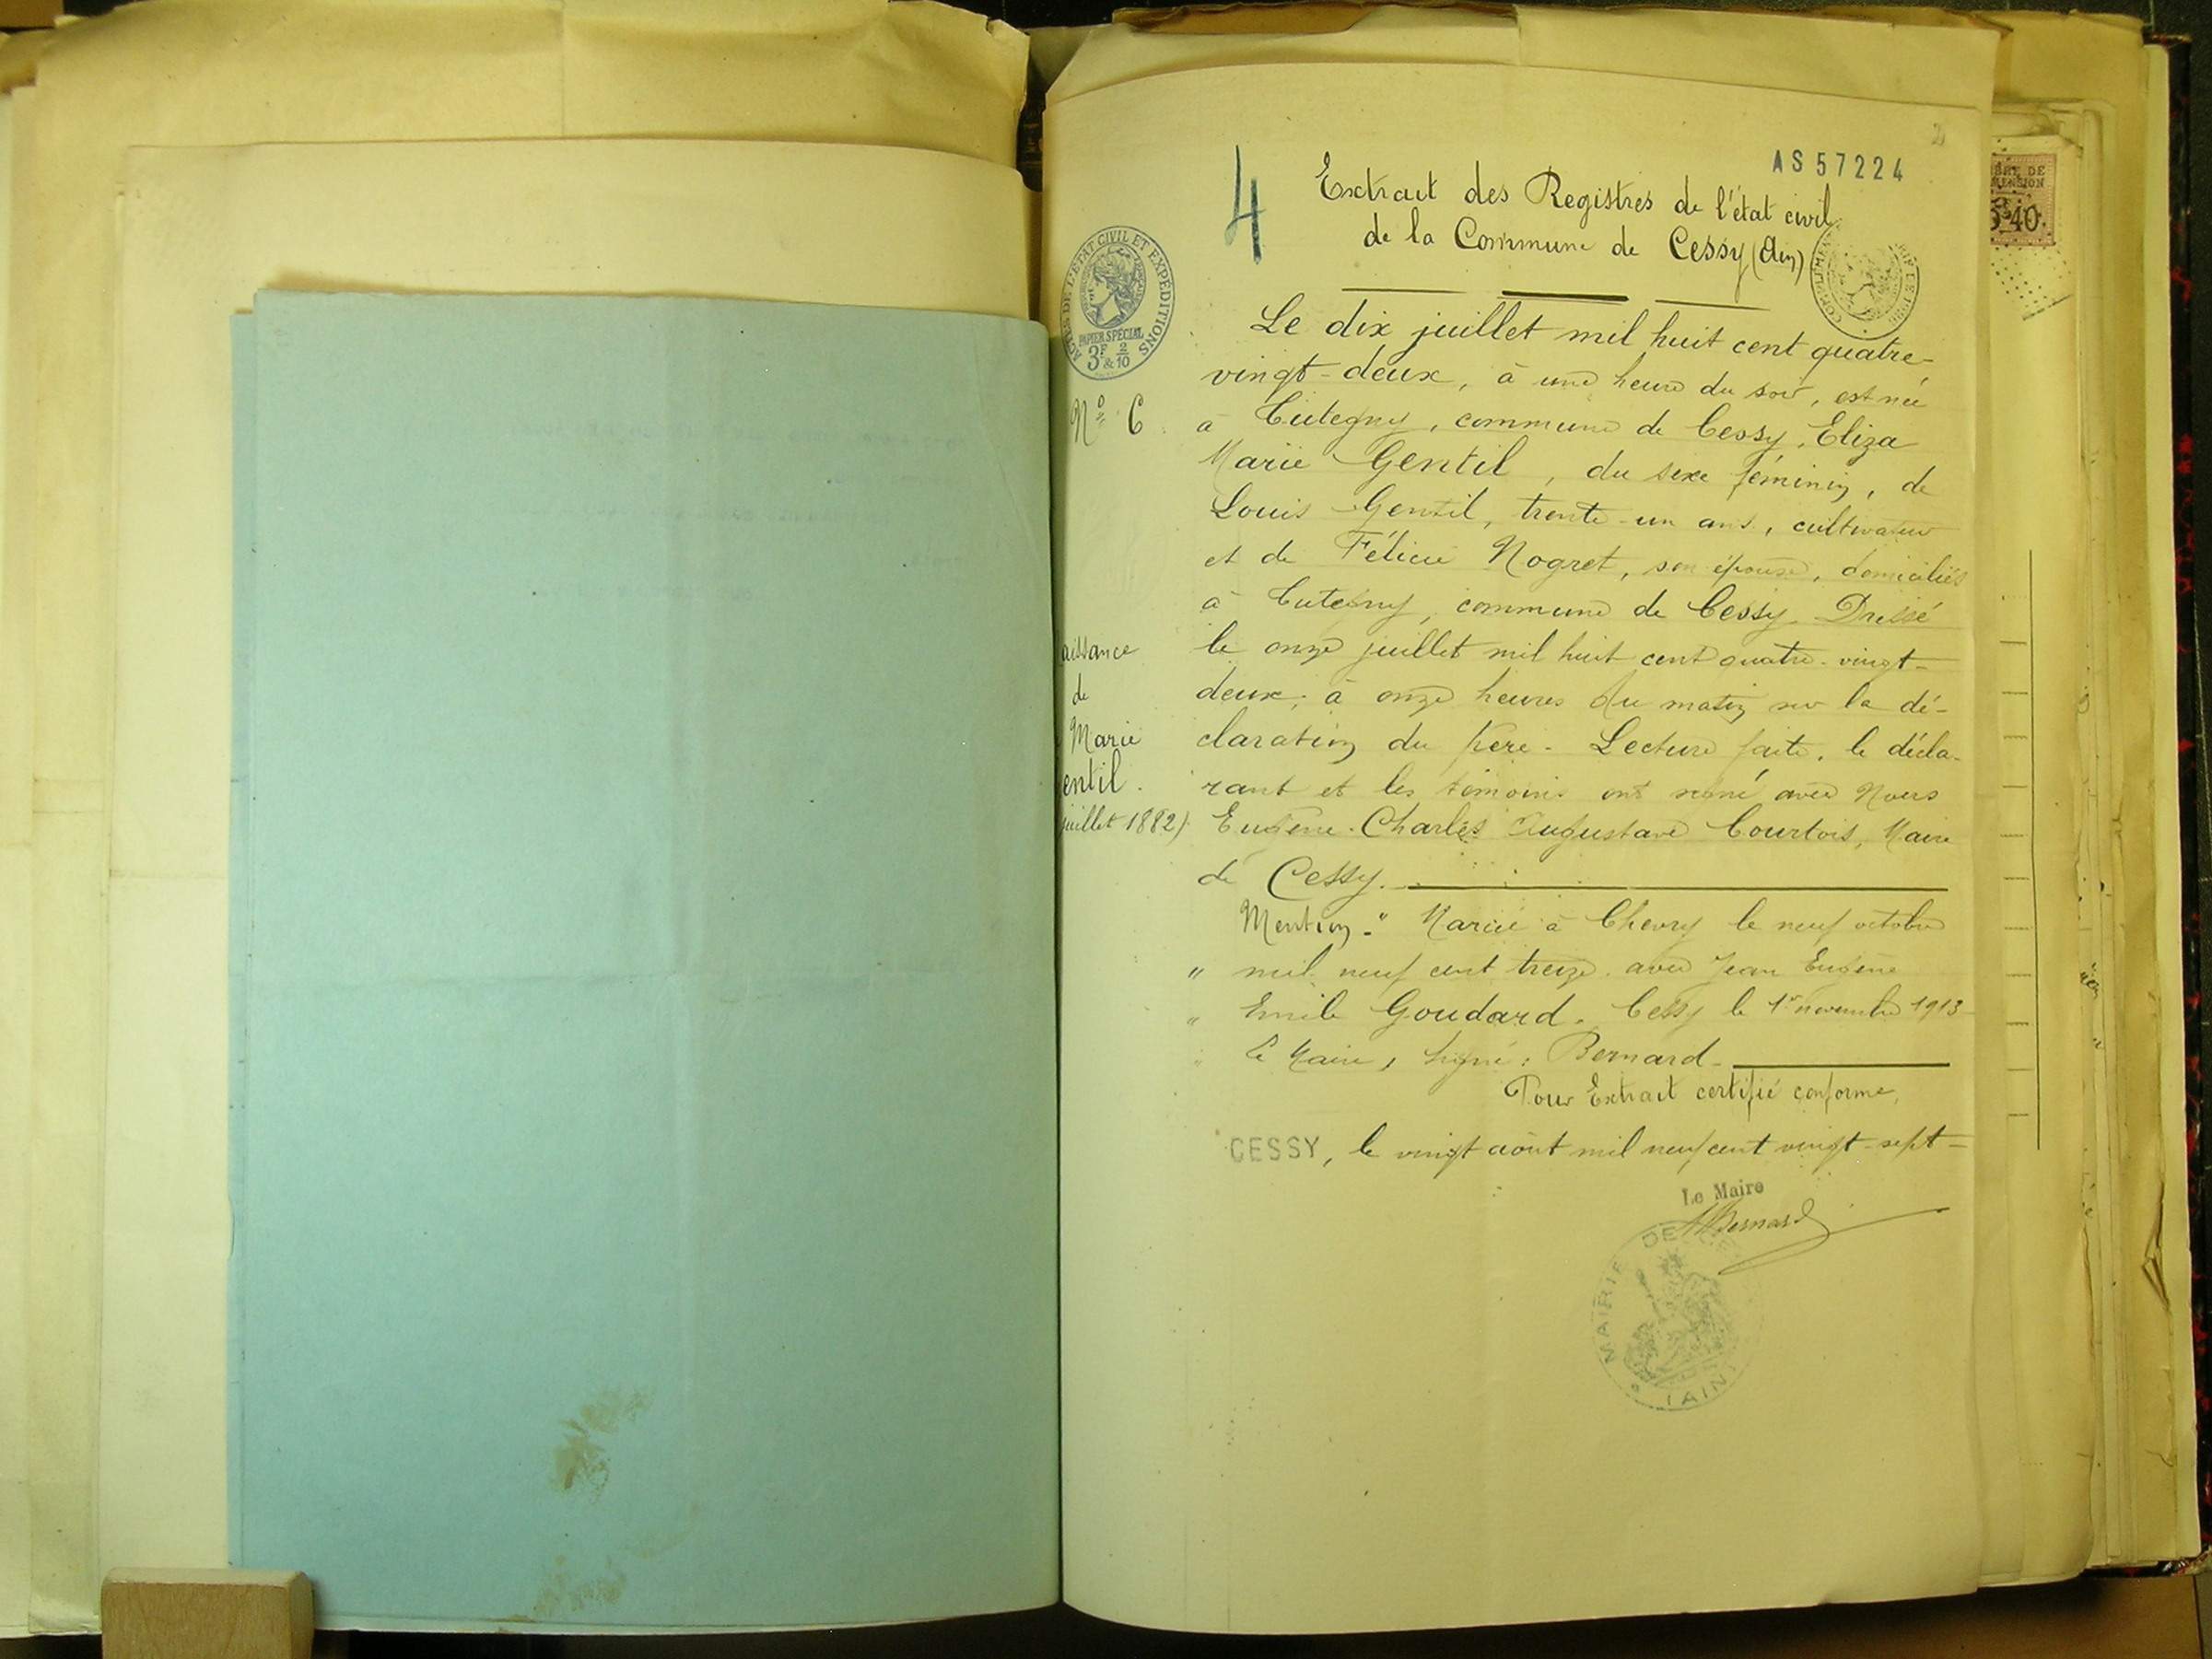 2
AS57224
4
Extrait des Registres de l'état civil
de la Commune de Cessy (Ain)
ACTES DE L'ÉTAT CIVIL ET EXPÉDITIONS
PAPIER SPÉCIAL
3F & 2/10
BRE DE
MENSION
40
Nº 6
aissance
de
Marie
entil.
juillet 1882)
Le dix juillet mil huit cent quatre-
vingt-deux, à une heure du soir, est née
à Tutegny, commune de Cessy, Eliza
Marie Gentil, du sexe féminin, de
Louis Gentil, trente-un ans, cultivateur
et de Félicie Nogret, son épouse, domiciliés
à Tutegny, commune de Cessy. Dressé
le onze juillet mil huit cent quatre-vingt-
deux, à onze heures du matin sur la dé-
claration du père. Lecture faite, le décla-
rant et les témoins ont signé avec Nous
Eugène Charles Courtois, Maire
de Cessy.
Mention. " Mariée à Chevry le neuf octobre
" mil neuf cent treize avec Jean Eugène
" Emile Goudard. Cessy le 1er novembre 1913
" Le Maire, signé: Bernard
Pour Extrait certifié conforme,
CESSY, le vingt août mil neuf cent vingt-sept
Le Maire
Bernard
MAIRIE DE CE
(AIN)